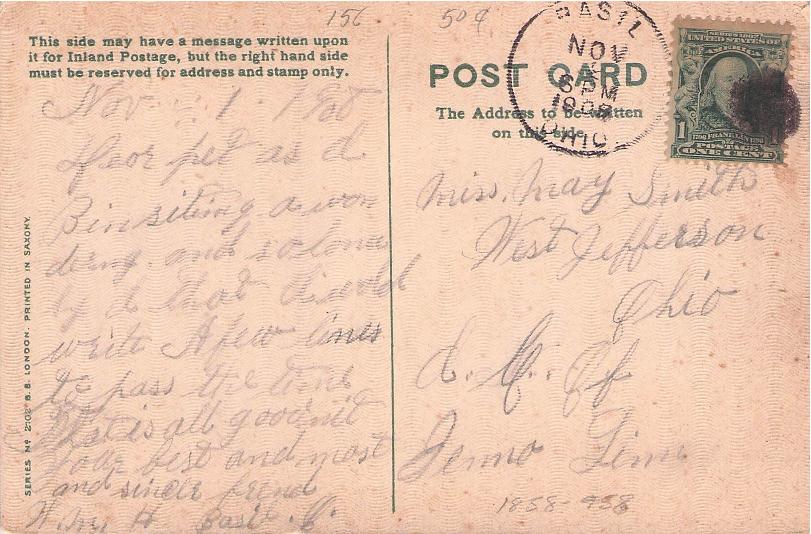 156 50¢
This side may have a message written upon
it for Inland Postage, but the right hand side
must be reserved for address and stamp only.
Nov - 1 -
Dear pet as d
Bin siting a won
dering and so lone
ly d that d wold
write A few lines
to pass the time
that is all good nit
your best and most
and sincle frend
Basil O.
SERIES Nº 2102 B.B. LONDON. PRINTED IN SAXONY.
POST CARD
The Address to be written
on this side.
BASIL
NOV
6 PM
1908
OHIO
SERIES 1902
UNITED STATES OF
AMERICA
1 FRANKLIN 1
POSTAGE
ONE CENT
Miss. May Smith
West Jefferson
Ohio
1858-958